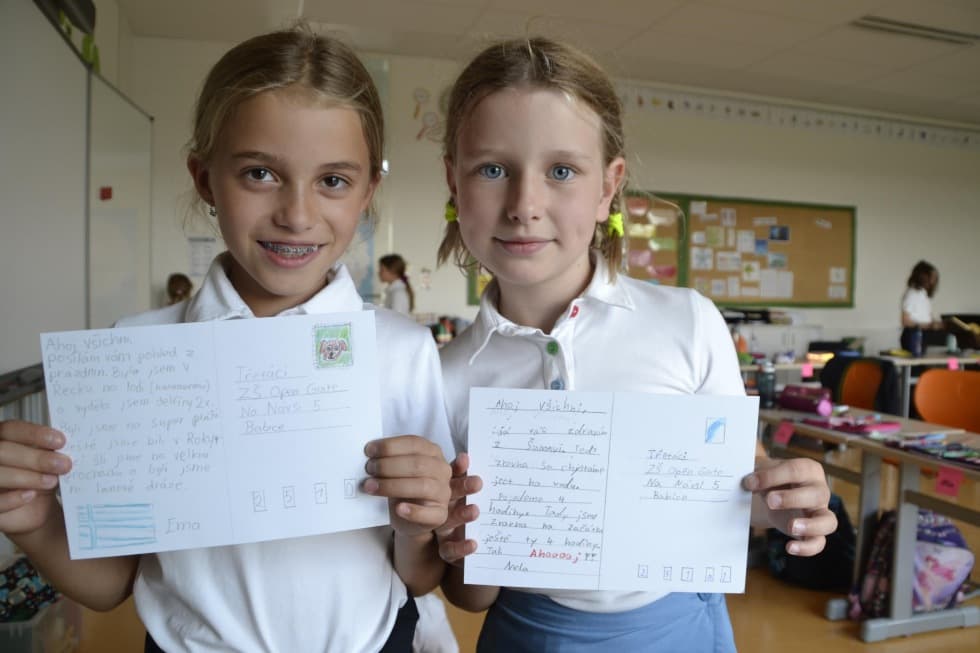 Ahoj všichni
posílám vám pohled z
prázdnin. Byla jsem v
Řecku na lodi (katamaranu)
a viděla jsem delfíny 2x.
Byli jsme na super pláži
ještě jsme byli v Rakou
a šli jsme na velkou
procházku a byli jsme
na lanové dráze.
Ema
Třeťáci
ZŠ Open Gate
Na Návsi 5
Babice
2 5 1 0
Ahoj všichni,
já vás zdravím
z Šumavy. Teď
zrovna se chystáme
jet na vodu
Pojedeme 4
hodiny. Tady jsme
zrovna na začátku
ještě ty 4 hodiny.
Tak Ahooooj!!
Nela
Třeťáci
ZŠ Open Gate
Na Návsi 5
Babice
2 5 1 0 1